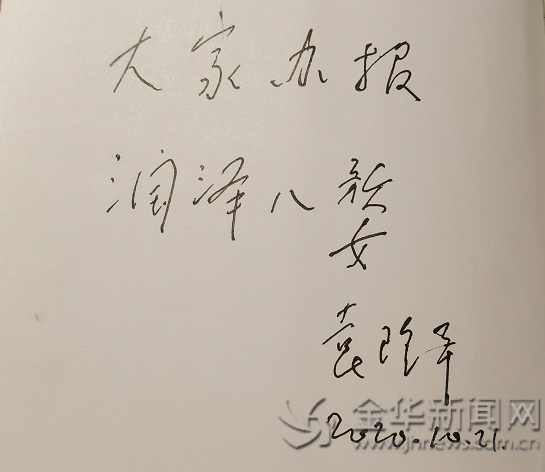 大家办报
润泽八婺
袁隆平
2020.10.21.
金华新闻网
www.jhnews.com.cn